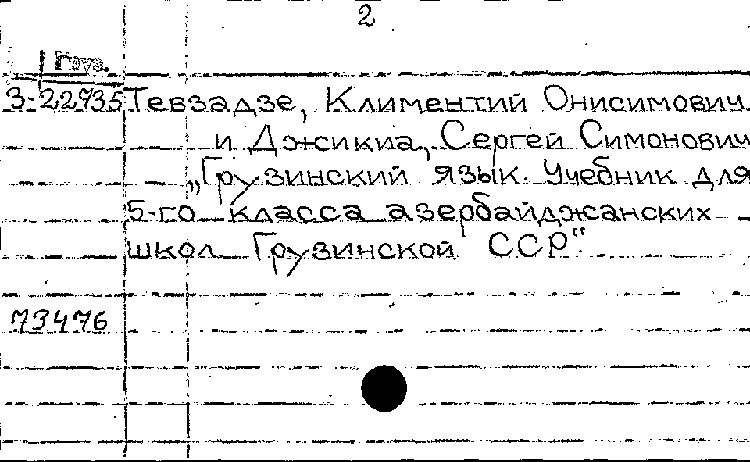 2
Груз.
3-22735 Тевзадзе, Климентий Онисимович
и Джикиа, Сергей Симонович
„Грузинский язык. Учебник для
5-го класса азербайджанских
школ Грузинской ССР“
73476